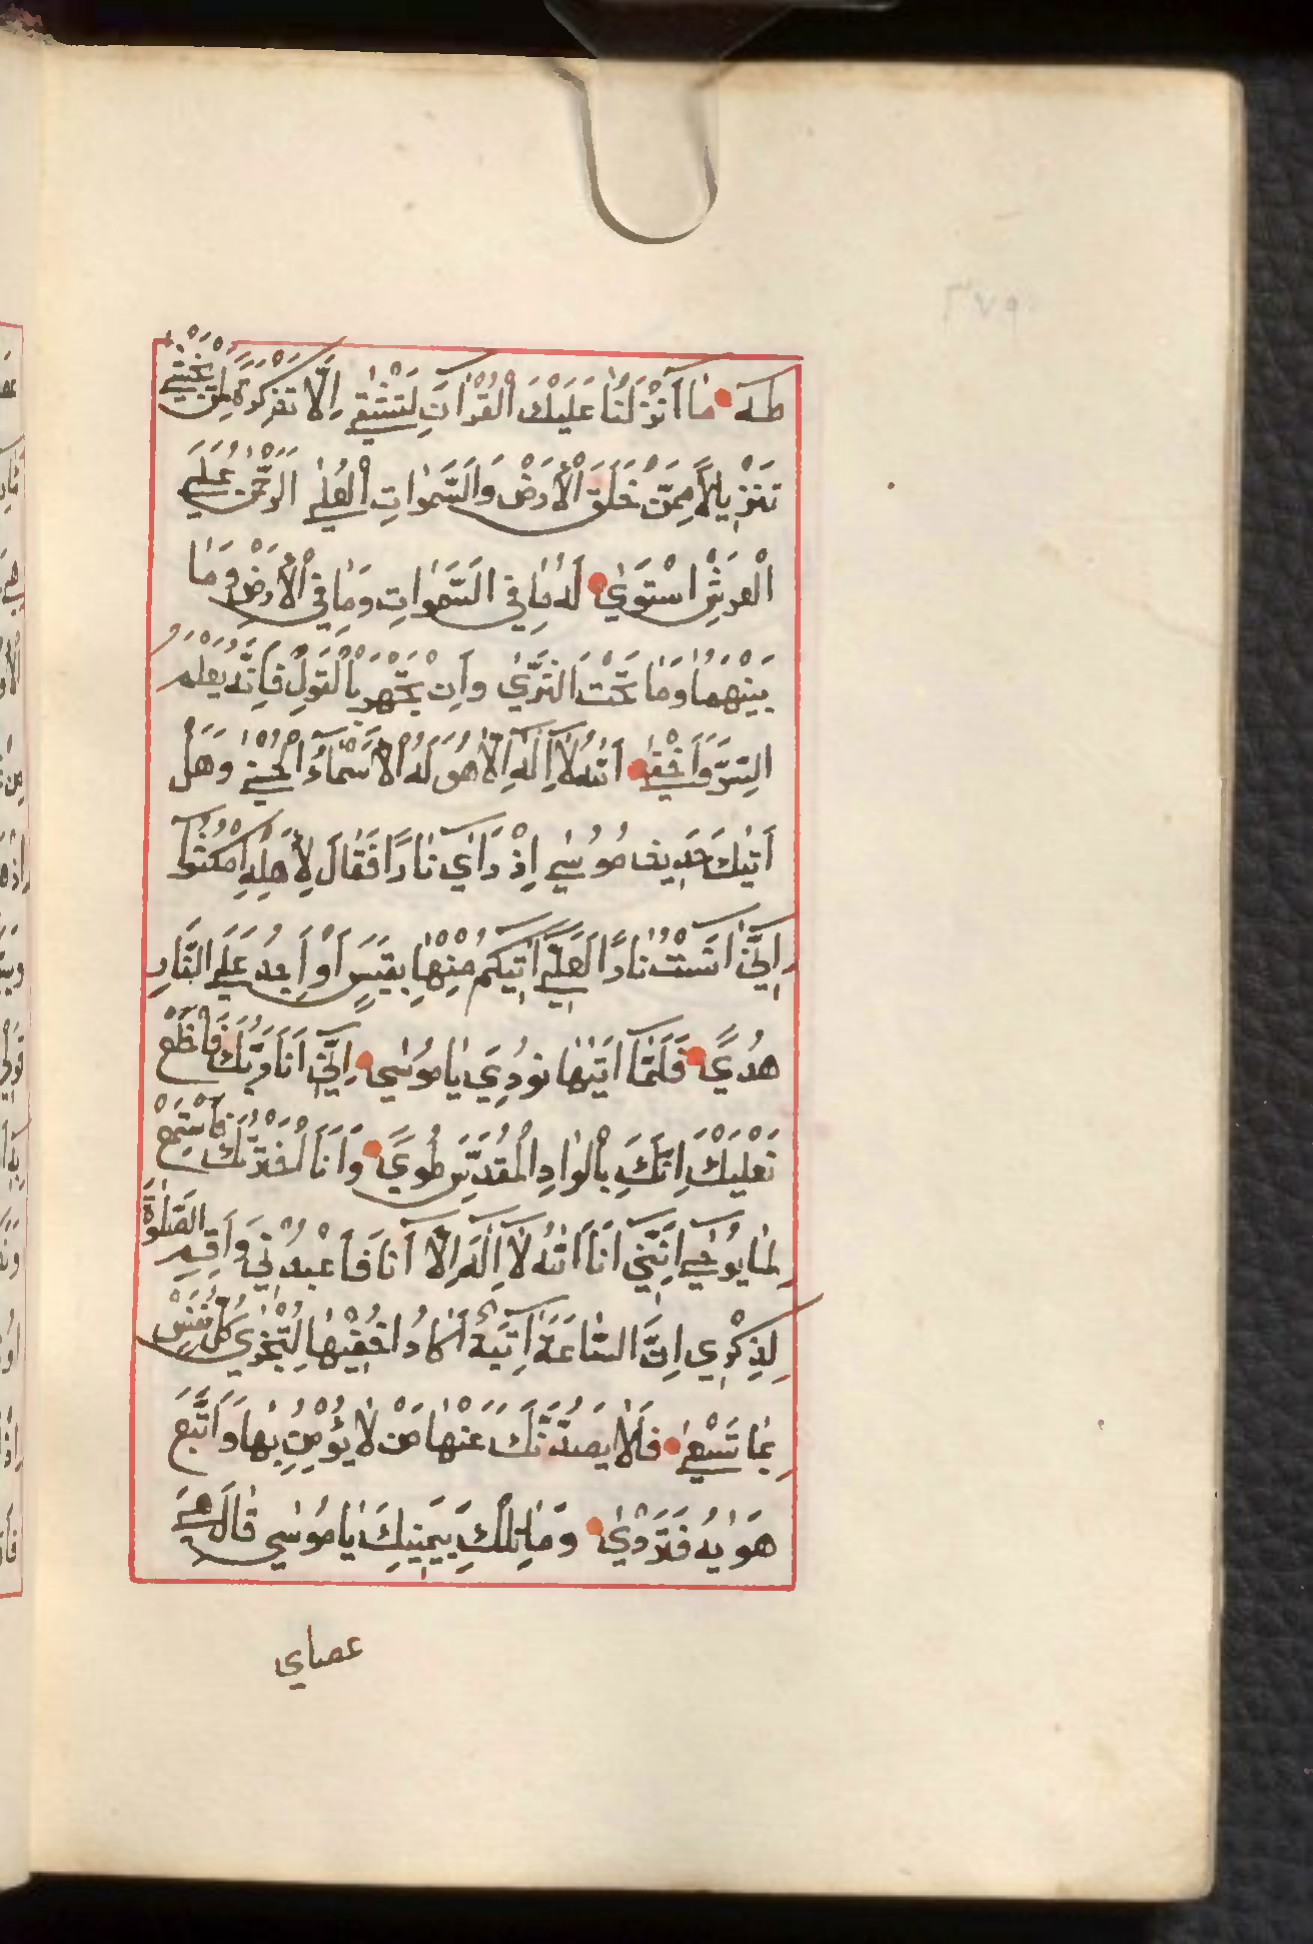 ٣٧٩
طه ما أَنْزَلْنَا عَلَيْكَ الْقُرْآنَ لِتَشْقَى إِلَّا تَذْكِرَةً لِمَنْ يَخْشَى
تَنْزِيلًا مِمَّنْ خَلَقَ الْأَرْضَ وَالسَّمٰوَاتِ الْعُلَى الرَّحْمٰنُ عَلَى
الْعَرْشِ اسْتَوٰى لَهُ مَا فِي السَّمٰوَاتِ وَمَا فِي الْأَرْضِ وَمَا
بَيْنَهُمَا وَمَا تَحْتَ الثَّرٰى وَإِنْ تَجْهَرْ بِالْقَوْلِ فَإِنَّهُ يَعْلَمُ
السِّرَّ وَأَخْفٰى اَللّٰهُ لَا إِلٰهَ إِلَّا هُوَ لَهُ الْأَسْمَاءُ الْحُسْنٰى وَهَلْ
أَتٰيكَ حَدِيثُ مُوسٰى إِذْ رَاٰى نَارًا فَقَالَ لِأَهْلِهِ امْكُثُوا
إِنِّي اٰنَسْتُ نَارًا لَعَلِّي اٰتِيكُمْ مِنْهَا بِقَبَسٍ أَوْ أَجِدُ عَلَى النَّارِ
هُدًى فَلَمَّا أَتٰيهَا نُودِيَ يَا مُوسٰى إِنِّي أَنَا رَبُّكَ فَاخْلَعْ
نَعْلَيْكَ إِنَّكَ بِالْوَادِ الْمُقَدَّسِ طُوًى وَأَنَا اخْتَرْتُكَ فَاسْتَمِعْ
لِمَا يُوحٰى إِنَّنِي أَنَا اللّٰهُ لَا إِلٰهَ إِلَّا أَنَا فَاعْبُدْنِي وَأَقِمِ الصَّلٰوةَ
لِذِكْرِي إِنَّ السَّاعَةَ اٰتِيَةٌ أَكَادُ أُخْفِيهَا لِتُجْزٰى كُلُّ نَفْسٍ
بِمَا تَسْعٰى فَلَا يَصُدَّنَّكَ عَنْهَا مَنْ لَا يُؤْمِنُ بِهَا وَاتَّبَعَ
هَوٰيهُ فَتَرْدٰى وَمَا تِلْكَ بِيَمِينِكَ يَا مُوسٰى قَالَ هِيَ
عصاي